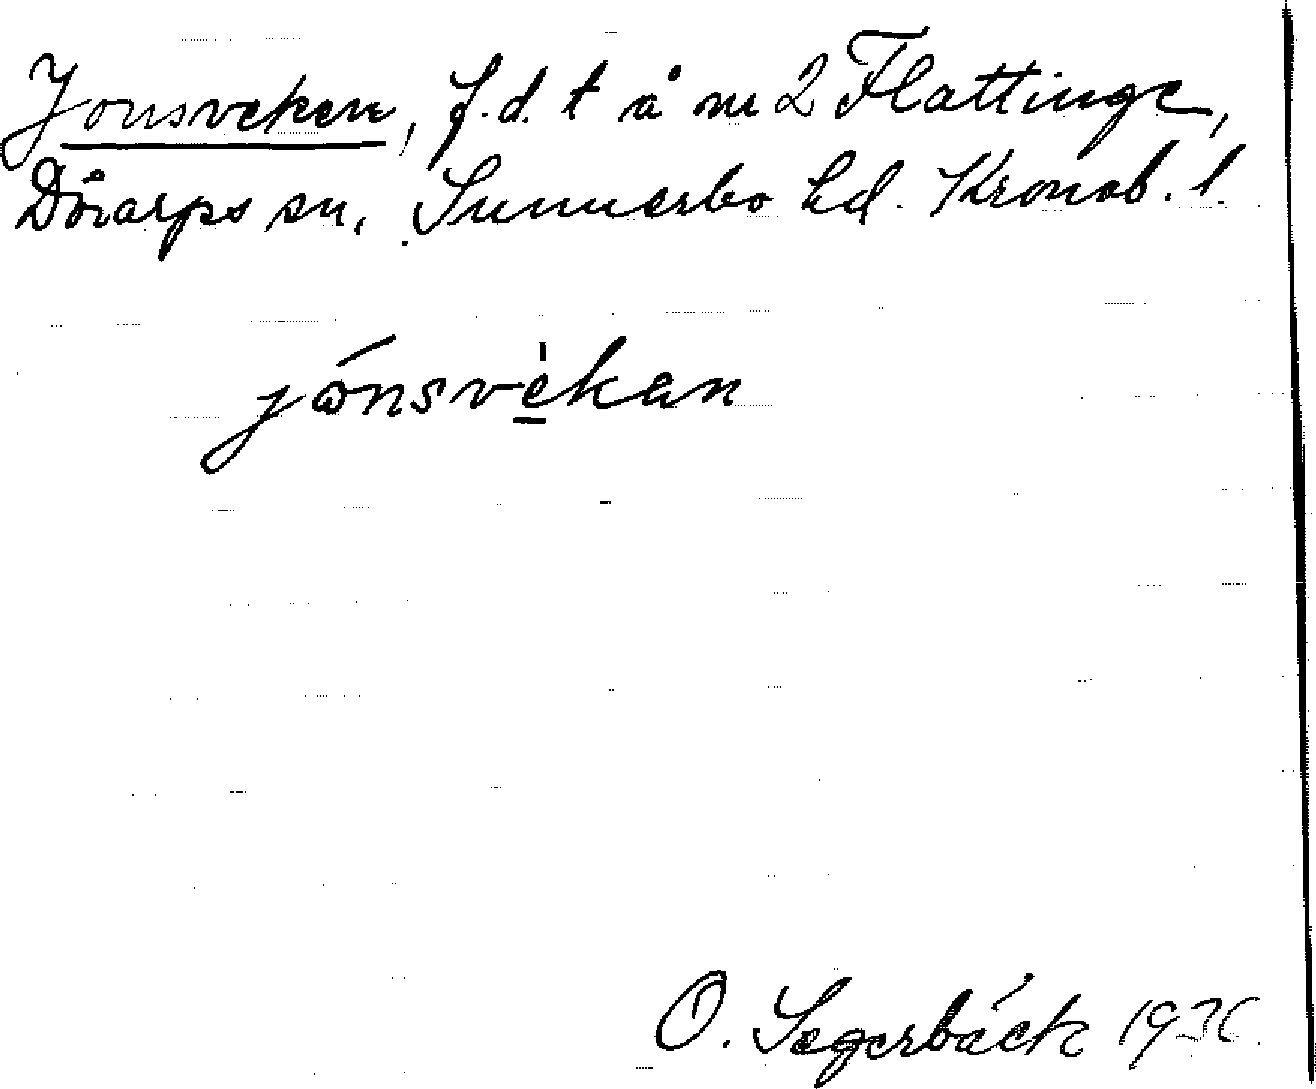 Jonsveken, f.d. t å nr 2 Flattinge,
Dörarps sn. Sunnerbo hd. Kronob. l.
jónsvèkan
O. Segerbäck 1936